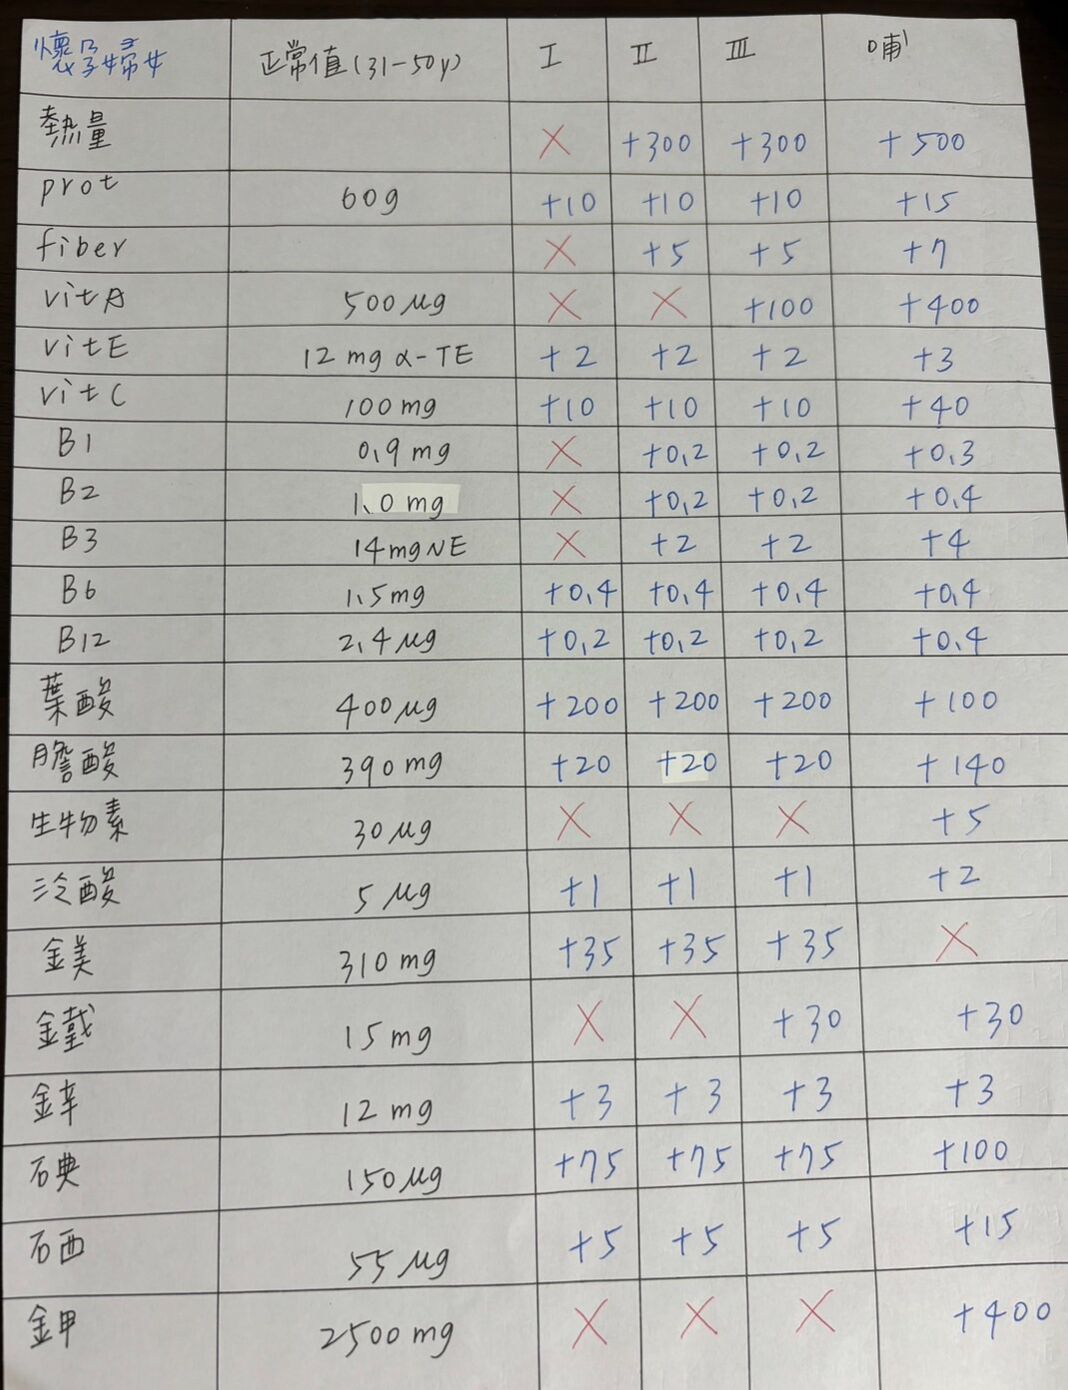 懷孕婦女 正常值(31-50y) I II III 哺
熱量 X +300 +300 +500
prot 60g +10 +10 +10 +15
fiber X +5 +5 +7
vitA 500μg X X +100 +400
vitE 12 mg α-TE +2 +2 +2 +3
vitC 100mg +10 +10 +10 +40
B1 0.9 mg X +0.2 +0.2 +0.3
B2 1.0 mg X +0.2 +0.2 +0.4
B3 14mgNE X +2 +2 +4
B6 1.5mg +0.4 +0.4 +0.4 +0.4
B12 2.4μg +0.2 +0.2 +0.2 +0.4
葉酸 400μg +200 +200 +200 +100
膽酸 390mg +20 +20 +20 +140
生物素 30μg X X X +5
泛酸 5μg +1 +1 +1 +2
鎂 310mg +35 +35 +35 X
鐵 15mg X X +30 +30
鋅 12mg +3 +3 +3 +3
碘 150μg +75 +75 +75 +100
硒 55μg +5 +5 +5 +15
鉀 2500mg X X X +400